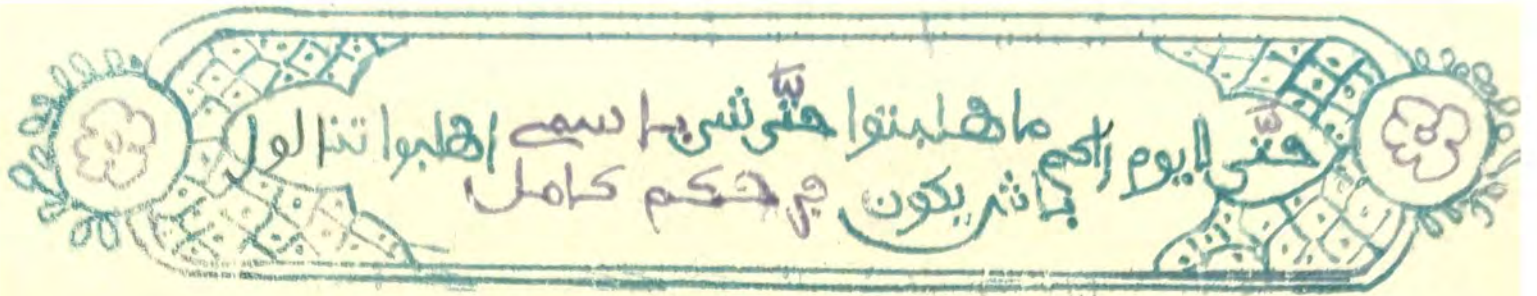 حتّى اليوم راكم ما طلبتوا حتّى شي باسمي اطلبوا تنالوا
باش يكون ڢرحكم كامل